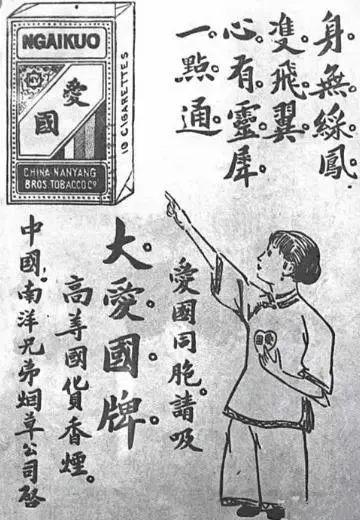 身無綵鳳
雙飛翼
心有靈犀
一點通
NGAIKUO
愛國
CHINA NANYANG
BROS. TOBACCO Cº
10 CIGARETTES
愛國同胞。請吸
大愛國牌
高等國貨香煙。
中國南洋兄弟烟草公司啓